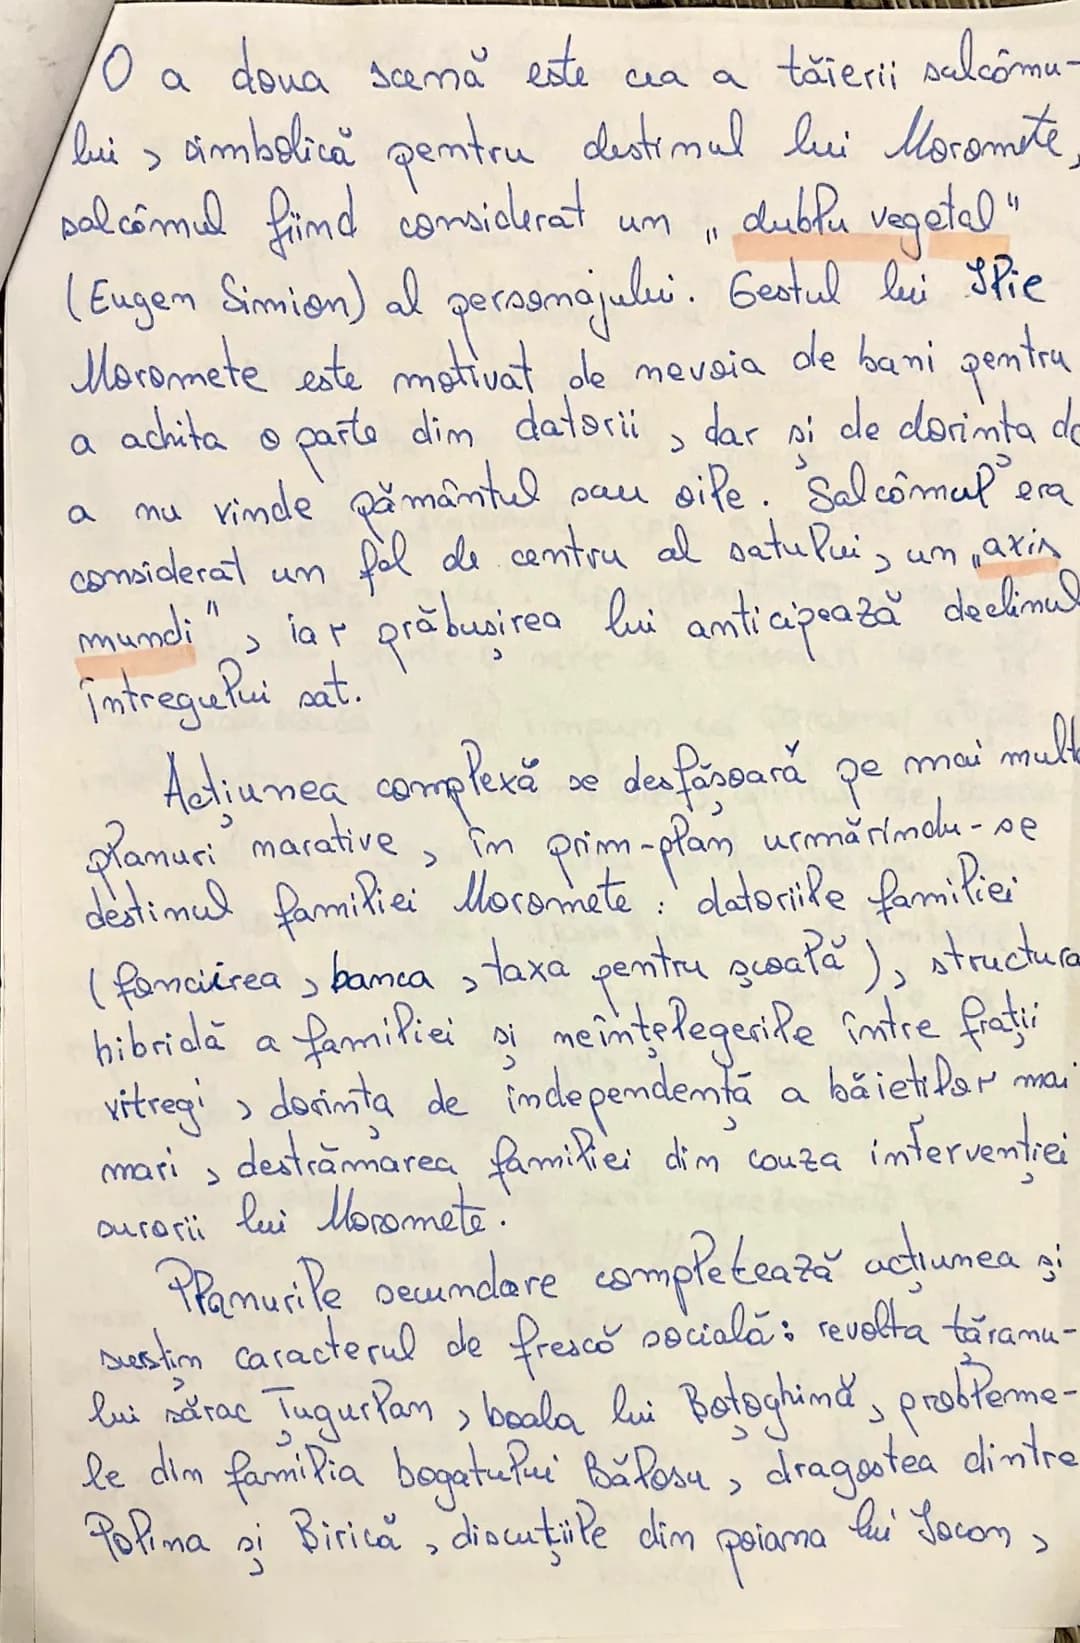 O a doua scenă este cea a tăierii salcâmu-
lui, simbolică pentru destinul lui Moromete,
salcâmul fiind considerat un „dublu vegetal"
(Eugen Simion) al personajului. Gestul lui Ilie
Moromete este motivat de nevoia de bani pentru
a achita o parte din datorii, dar și de dorința de
a nu vinde pământul sau oile. Salcâmul era
considerat un fel de centru al satului, un „axis
mundi", iar prăbușirea lui anticipează declinul
întregului sat.
Acțiunea complexă se desfășoară pe mai multe
planuri narative, în prim-plan urmărindu-se
destinul familiei Moromete: datoriile familiei
(fonciirea, banca, taxa pentru școală), structura
hibridă a familiei și neînțelegerile între frații
vitregi, dorința de independență a băieților mai
mari, destrămarea familiei din couza intervenției
surorii lui Moromete.
Planurile secundare completează acțiunea și
susțin caracterul de frescă socială: revolta țăranu-
lui sărac Țugurlan, boala lui Boțoghină, probleme-
le din familia bogatului Bălosu, dragostea dintre
Polina și Birică, discuțiile din poiana lui Iocan,